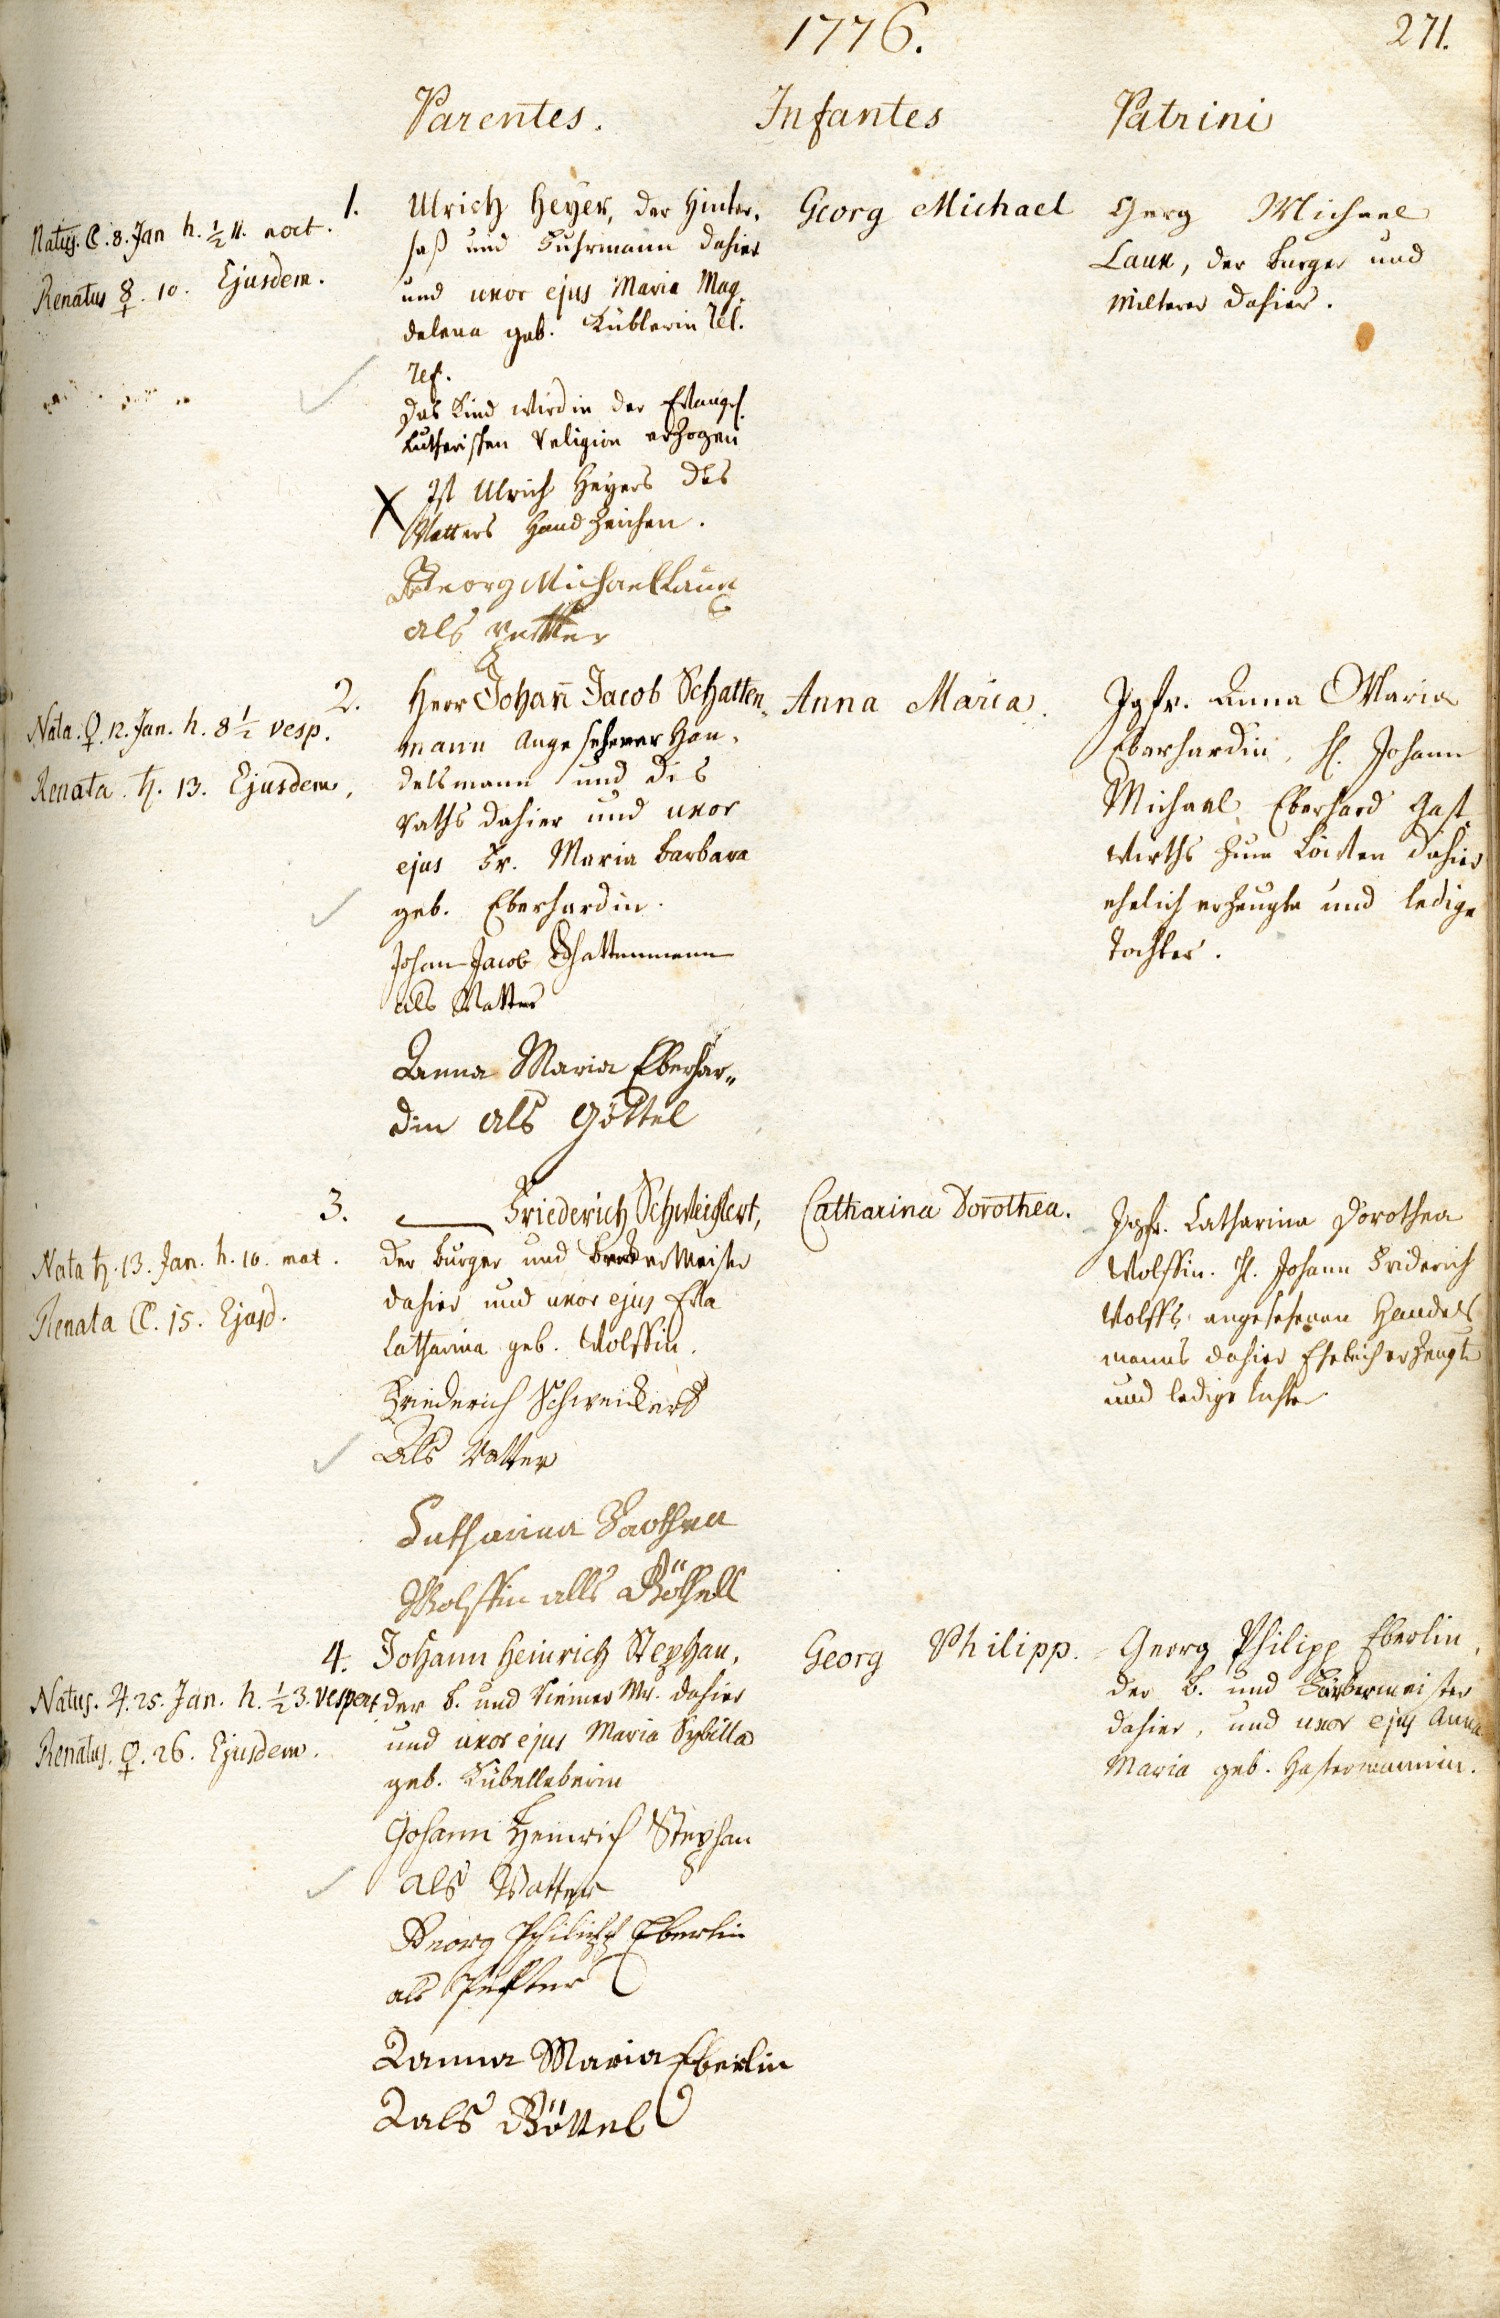 1776.
271.
Parentes.
Infantes
Patrini
Natus. ☾. 8. Jan h. ½ 11. noct.
Renatus ☿. 10. Ejusdem.
1.
Ulrich Heyer, der Hinter,
saß und Fuhrmann dahier
und uxor ejus Maria Mag,
dalena geb. Küblerin rel.
ref.
Das Kind wird in der Evangel.
Lutherischen Religion erzogen
X Ist Ulrich Heyers des
Vatters Handzeichen.
Georg Michael Laux
als Petter
Georg Michael
Georg Michael
Laux, der Burger und
dahier.
Nata. ♀. 12. Jan. h. 8½ vesp.
Renata. ♄. 13. Ejusdem.
2.
Herr Johann Jacob Schatten,
mann Angesehener Han,
delsmann und des
Raths dahier und uxor
ejus Fr. Maria Barbara
geb. Eberhardin.
Johan Jacob Schattenmann
als Vatter
Anna Maria Eberhar„
din als Göttel
Anna Maria.
Jgfr. Anna Maria
Eberhardin, H. Johann
Michael Eberhard Gast,
wirths zum Löwen dahier
ehelich erzeugte und ledige
Tochter.
Nata ♄. 13. Jan. h. 10. mat.
Renata ☾. 15. Ejusd.
3.
Friederich Schweickert,
der Burger und Becker Meister
dahier und uxor ejus Eva
Catharina geb. Wolffin.
Friederich Schweickert
Als Vatter
Catharina Dorothea
Wolffin alls Göthell
Catharina Dorothea.
Jgfr. Catharina Dorothea
Wolffin. H. Johann Friderich
Wolffs, angesehenen Handels
manns dahier Ehelich erzeugte
und ledige Tochter
Natus. ♃. 25. Jan. h. ½ 3. vespert
Renatus. ♀. 26. Ejusdem.
4.
Johann Heinrich Stephan,
der B. und Riemer Mr. dahier
und uxor ejus Maria Sybilla
geb. Kübelleberin
Johann Heinrich Stephan
als Vatter
Georg Philipp Eberlin
als Petter
Anna Maria Eberlin
als Göttel
Georg Philipp.
Georg Philipp Eberlin,
der B. und Färbermeister
dahier, und uxor ejus Anna
Maria geb.